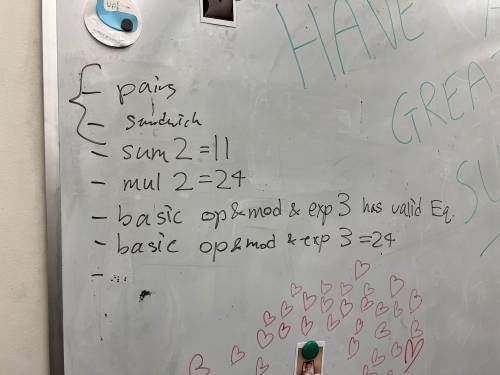 up!
HAVE A
GREAT
SU
- pairs
- sandwich
- sum 2 = 11
- mul 2 = 24
- basic op & mod & exp 3 has valid Eq.
- basic op & mod & exp 3 = 24
- ...